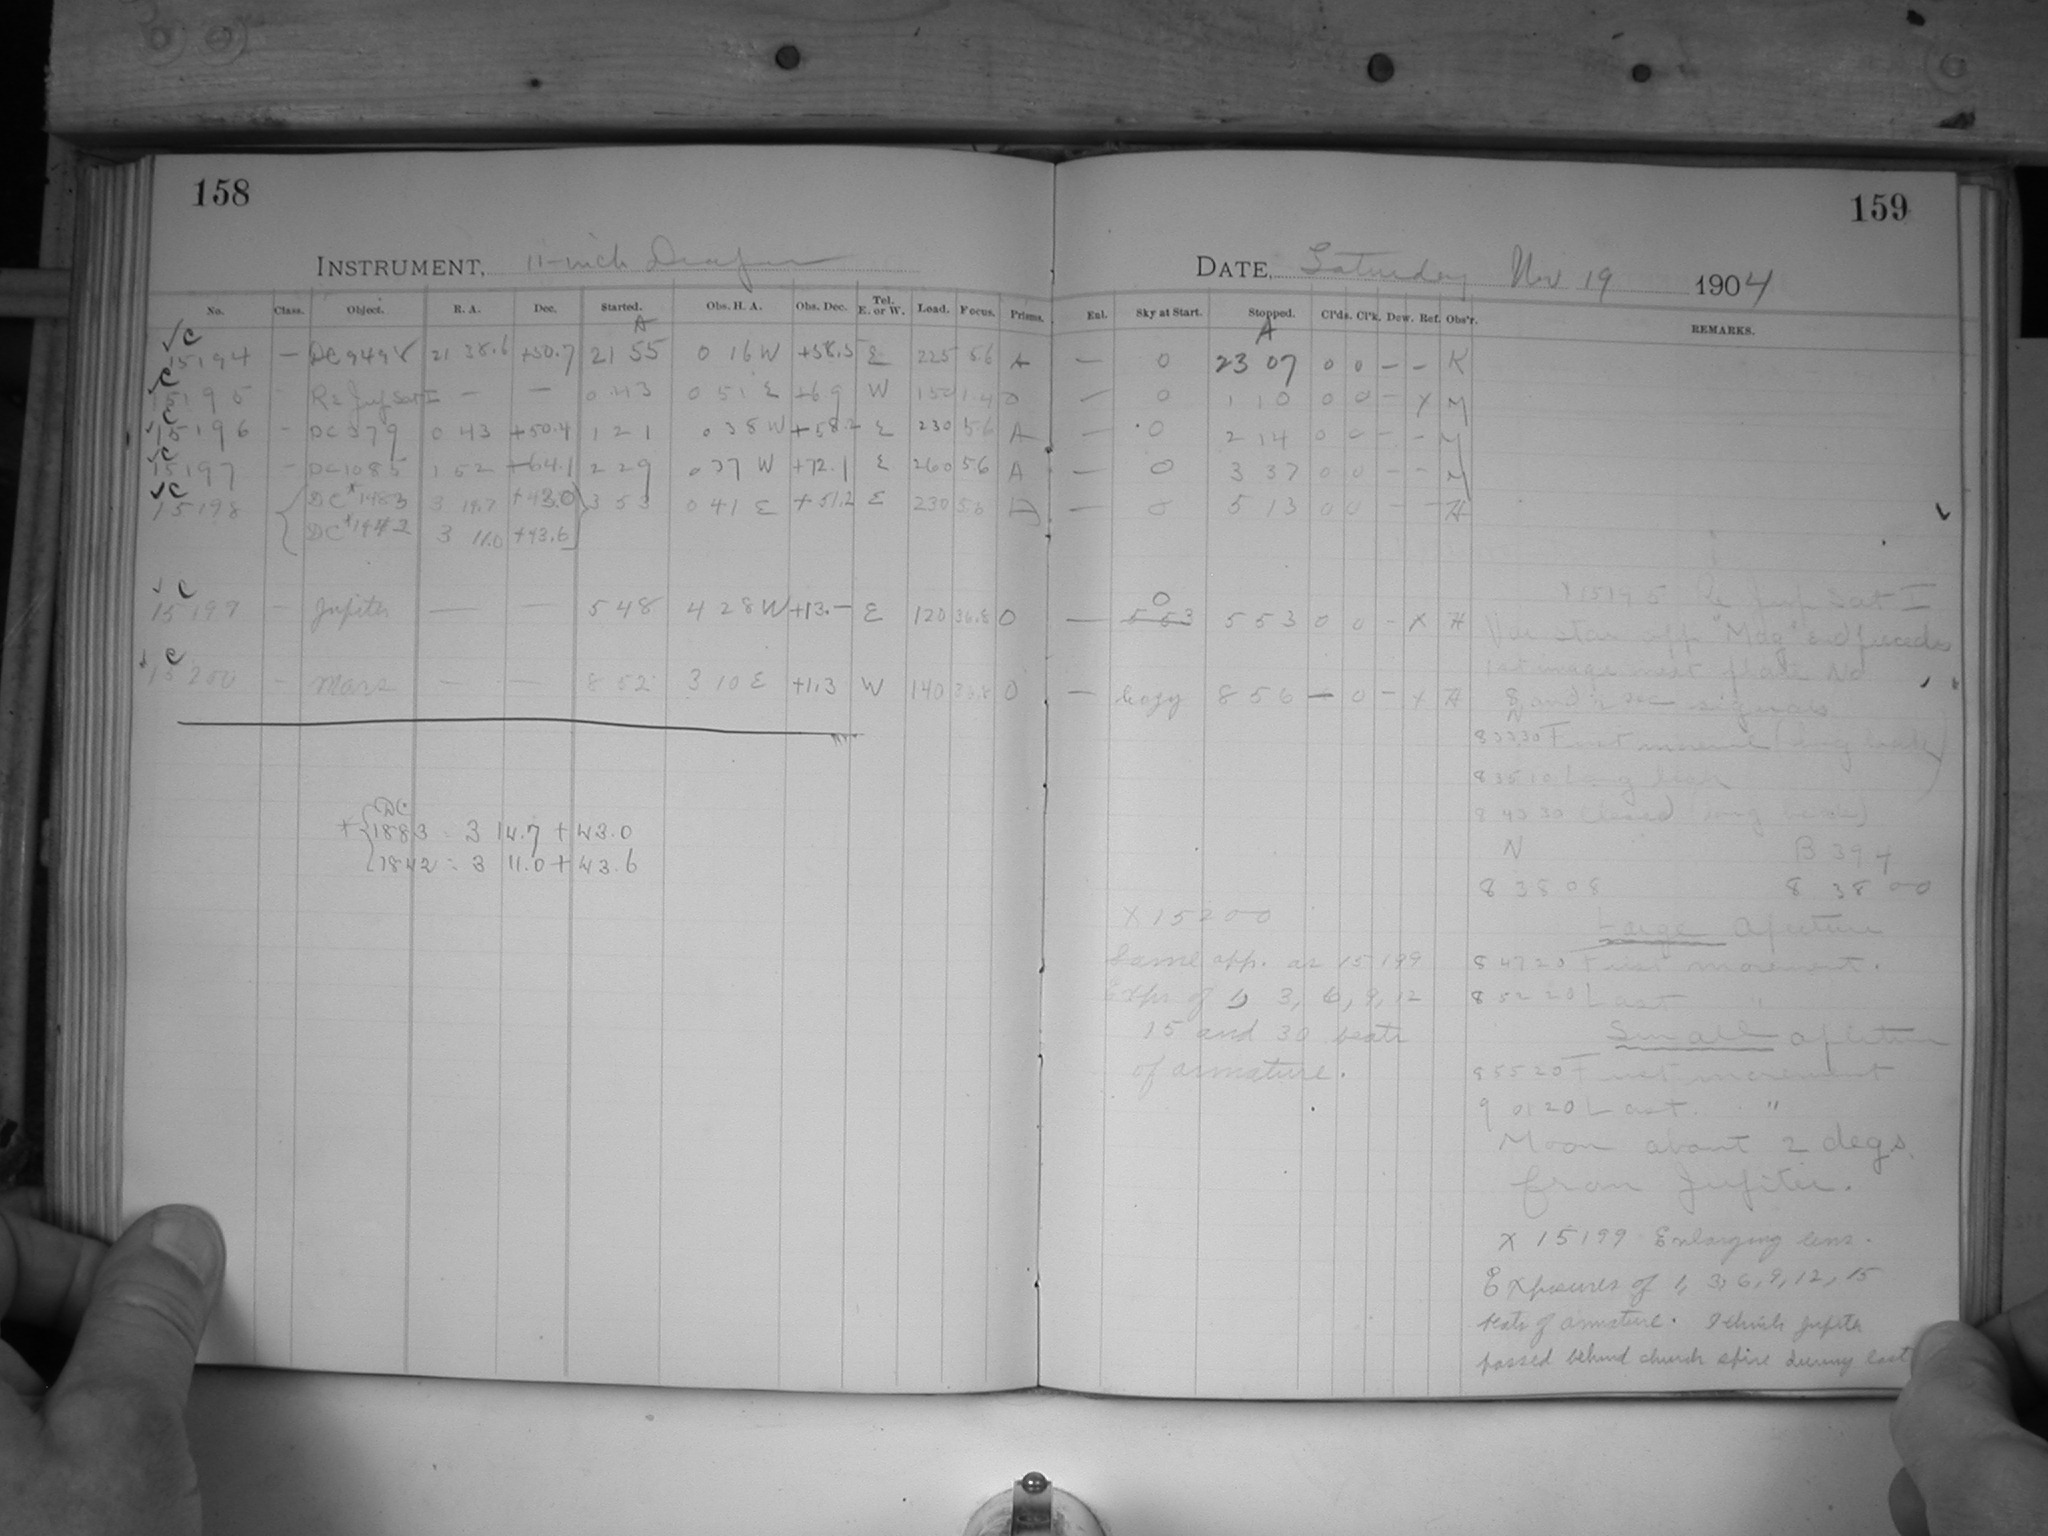 158
159
INSTRUMENT, 11-inch Draper
DATE, Saturday Nov 19 1904
No. Class. Object. R. A. Dec. Started. Obs. H. A. Obs. Dec. Tel. E. or W. Load. Focus. Prisms. Enl. Sky at Start. Stopped. Cl'ds. Cl'k. Dew. Ref. Obs'r. REMARKS.
A A
✓C
15194 — DC 9498 21 38.6 +50.7 21 55 0 16 W +58.5 E 225 5.6 A — 0 23 07 0 0 — — K
15195 - Re Jup Sat I — — 0 43 0 51 E +6.9 W 150 1.4 0 — 0 1 10 0 0 - X M
15196 - DC 379 0 43 +50.4 1 21 0 38 W +58.2 E 230 5.6 A — 0 2 14 0 0 - - M
15197 - DC 1085 1 52 +64.1 2 29 0 37 W +72.1 E 260 5.6 A — 0 3 37 0 0 - - M
15198 DC* 1483 3 14.7 +43.0 3 53 0 41 E +51.2 E 230 5.6 A — 0 5 13 0 0 - - H
DC* 1442 3 11.0 +43.6
✓ C
15199 - Jupiter — — 5 48 4 28 W +13.- E 120 36.8 0 — 0 5 53 5 53 0 0 - X H
15200 - Mars — — 8 52 3 10 E +1.3 W 140 36.8 0 — hazy 8 56 — 0 - X H
DC
1883 = 3 14.7 + 43.0
1842 = 3 11.0 + 43.6
X 15195 Re Jup Sat I
1st image next plate No
8 and signals
First movement (long
8 35 10 Long
8 40 30 Closed long
N B 394
8 38 08 8 38 00
Large Aperture
8 47 20 First movement.
8 52 20 Last "
Small aperture
8 55 20 First movement
9 01 20 Last "
Moon about 2 degs.
from Jupiter.
X 15199 Enlarging lens.
Exposures of 1, 3, 6, 9, 12, 15
beats of armature. I think Jupiter
passed behind church spire during last
X 15200
Same app. as 15199
Exps of 1, 3, 6, 9, 12
15 and 30 beats
of armature.